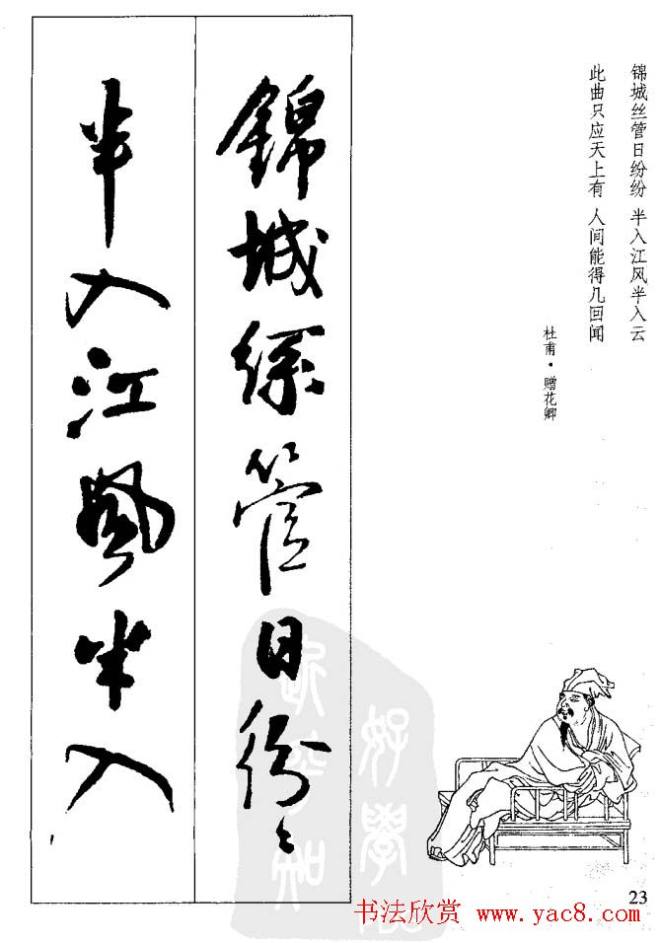 锦城丝管日纷纷 半入江风半入云
此曲只应天上有 人间能得几回闻
杜甫·赠花卿
錦城絲管日紛〻
半入江風半入
好學
知
23
书法欣赏 www.yac8.com